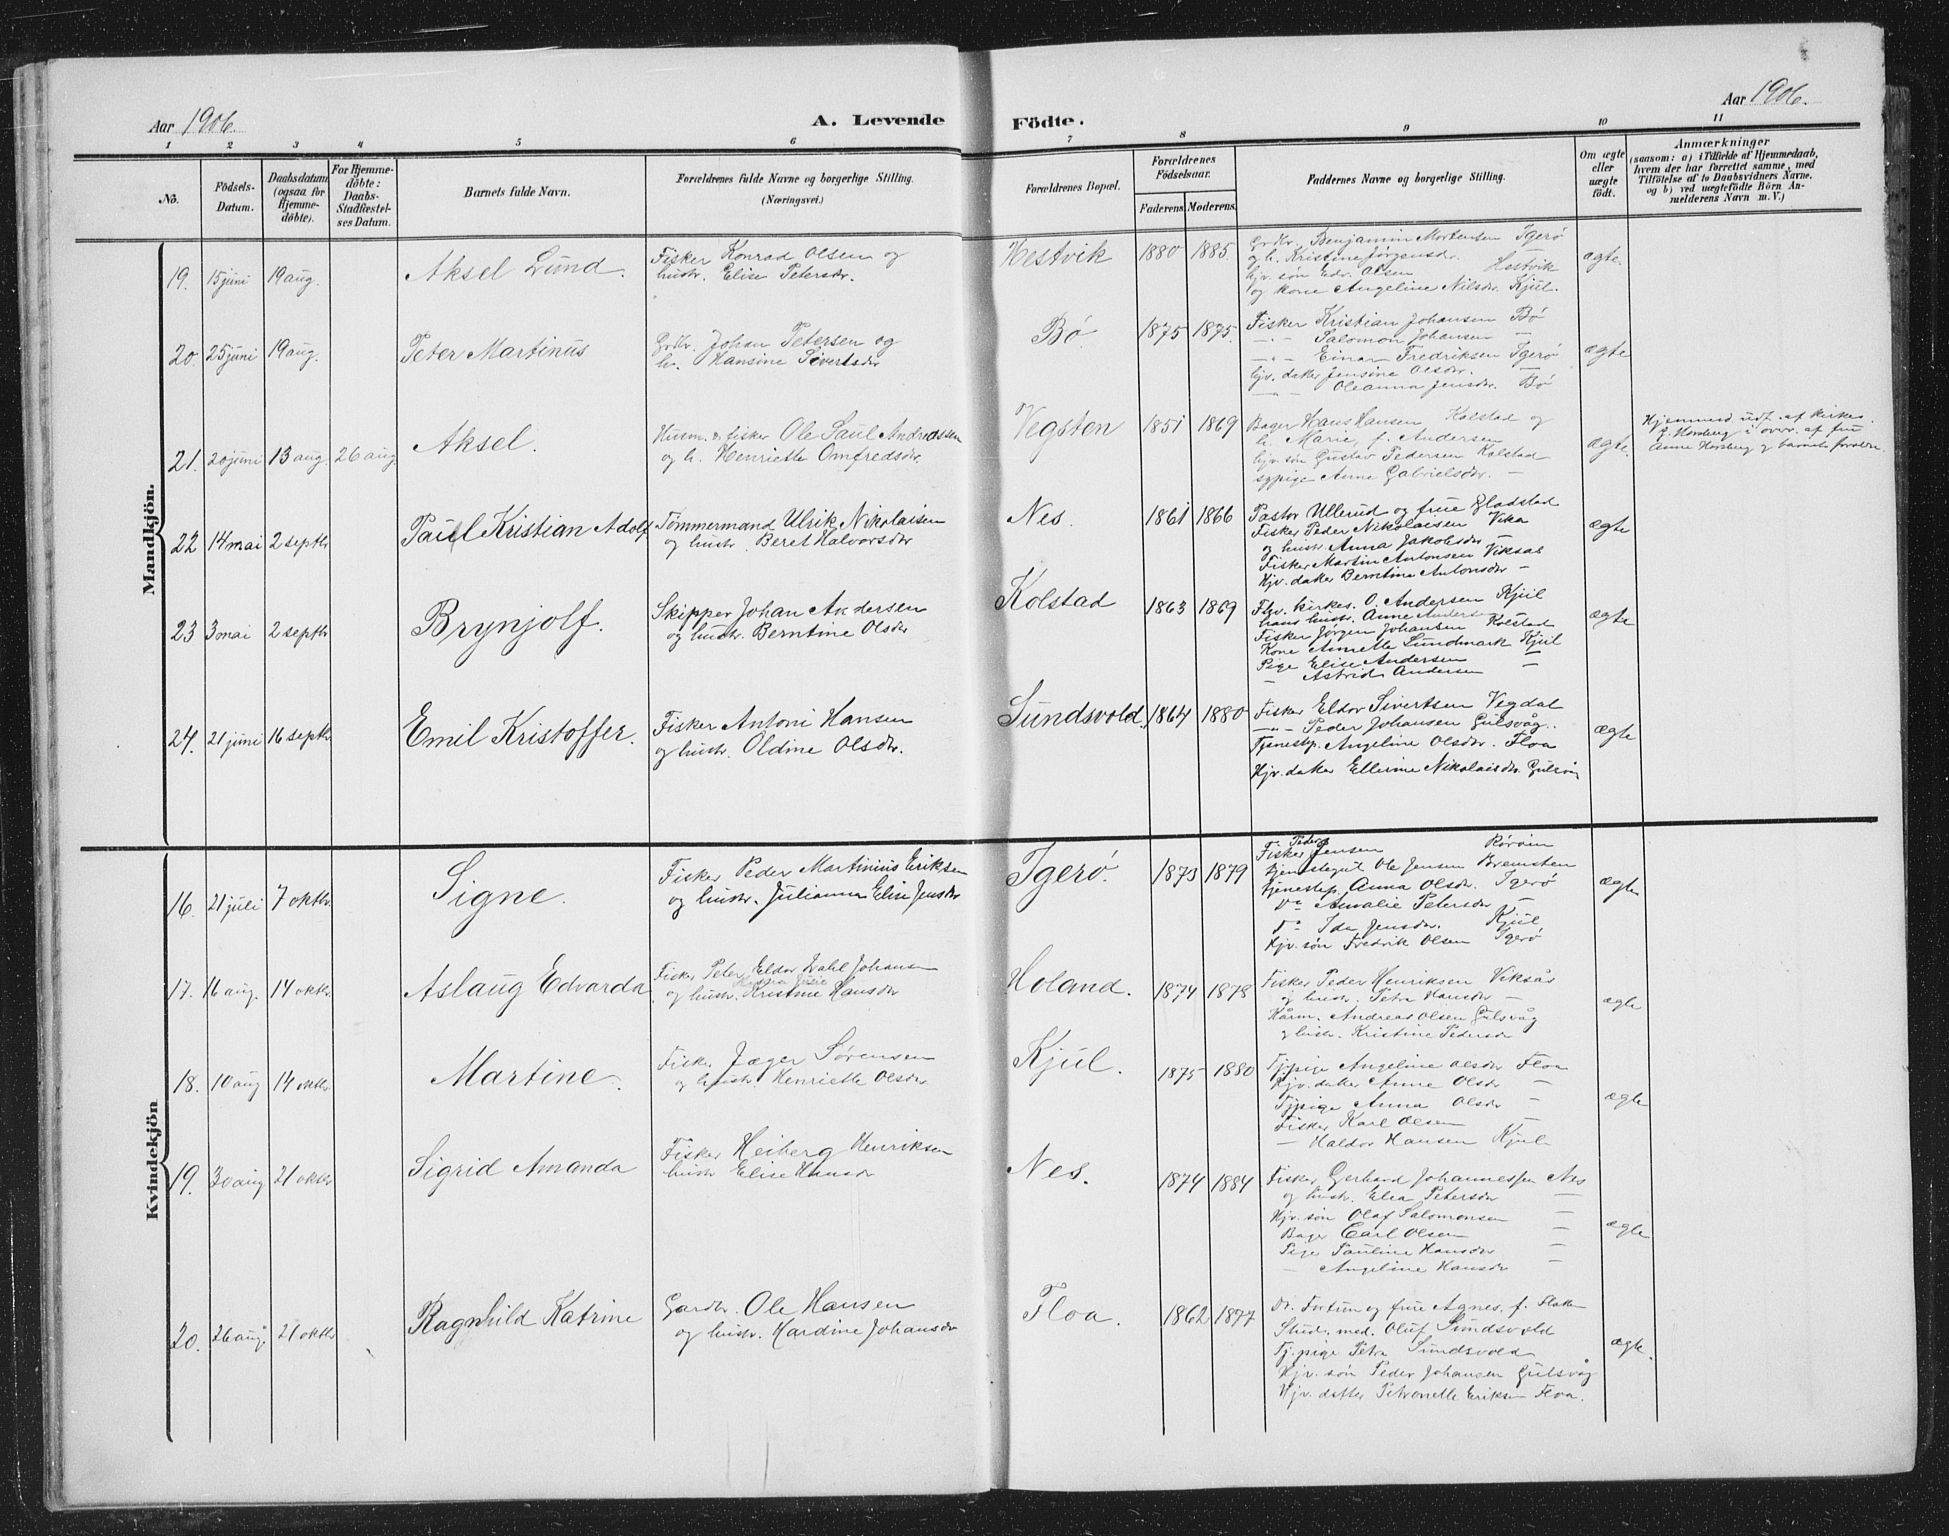 Aar 1906.
A. Levende Födte.
Aar 1906.
1 2 3 4 5 6 7 8 9 10 11
No.
Födsels-Datum.
Daabsdatum (ogsaa for Hjemme-döbte).
For Hjemme-döbte: Daabs-Stadfæstel-ses Datum.
Barnets fulde Navn.
Forældrenes fulde Navne og borgerlige Stilling.
(Næringsvei.)
Forældrenes Bopæl.
Forældrenes Födselsaar.
Faderens. Moderens.
Faddernes Navne og borgerlige Stilling.
Om ægte eller uægte födt.
Anmærkninger
(saasom: a) i Tilfælde af Hjemmedaab,
hvem der har forrettet samme, med
Tilföielse af to Daabsvidners Navne.
og b) ved uægtefödte Börn An-
melderens Navn m. V.)
Mandkjön.
19. 15 juni 19 aug. Aksel Lund.
Fisker Konrad Olsen og
hustr. Elise Petersdr.
Hestvik 1880 1885.
Grdbr. Benjamin Mortensen Igerö
og h. Kristine Jörgensdr.
hjv. sön Edv. Olsen Hestvik
og kone Angeline Nilsdr. Kjul.
ægte.
20. 25 juni 19 aug. Peter Martinus
Grdbr. Johan Petersen og
h. Hansine Sivertsdr
Bö. 1875 1875.
Fisker Kristian Johansen Bö
—"— Salomon Johansen —
—"— Einar Fredriksen Igerö
hjv. dakter Jensine Olsdr.
—"— Oleanna Jensdr. Bö
ægte
21. 20 juni 13 aug. 26 aug. Aksel.
Husm. & fisker Ole Paul Andreassen
og h. Henriette Omfredsdr.
Vegsten 1851 1869
Bager Hans Hansen Kolstad og
h. Marie f. Andersen
hjv. sön Gustav Pedersen Kolstad
sypige Anne Gabrielsdr. —
ægte.
Hjemmed. udf. af kirkes.
f. Horsberg i ovrv. af fru
Anne Horsberg og barnets forældre
22 14 mai 2 septbr Paul Kristian Adolf
Tömmermand Ulrik Nikolaisen
og hustr. Beret Halvorsdr
Nes. 1861 1866
Pastor Ullerud og frue Gladstad
Fisker Peder Nikolaisen Vika
og hustr. Anna Jakobsdr —
Fisker Martin Antonsen Viksaas
Hjv. dakter Berntine Antonsdr —
ægte
23 3 mai 2 septbr Brynjolf.
Skipper Johan Andersen
og hustr. Berntine Olsdr
Kolstad 1863 1869
Fhv. kirkes. O. Andersen Kjul
hans hustr. Anne Andersen
Fisker Jörgen Johansen Kolstad
Kone Annette Sundmark Kjul
Pige Elise Andersen —
— Astrid Andersen —
ægte
24. 21 juni 16 septbr Emil Kristoffer.
Fisker Antoni Hansen
og hustr. Oldine Olsdr.
Sundsvold. 1864 1880
Fisker Eldor Sivertsen Vegdal
—"— Peder Johansen Gulsvåg.
Tjenestep. Angeline Olsdr. Floa
Hjv. dakter Ellerine Nikolaisdr. Gulsvåg
ægte
Kvindekjön
16. 21 juli 7 oktbr. Signe.
Fisker Peder Martinius Eriksen
og hustr. Julianna Elise Jensdr
Igerö. 1873 1879
Fisker Peder Jensen Röröin
tjenestegut Ole Jensen Bremsten
tjenestep. Anna Olsdr. Igerö
Do Amalie Petersdr —
Do Ida Jensdr. Kjul
Hjv. sön Fredrik Olsen Igerö
ægte
17. 16 aug. 14 oktbr. Aslaug Edvarda
Fisker Peter Eldor Dahl Johansen
og hustr. Kristine Hansdr
Holand. 1874 1878
Fisker Peder Henriksen Viksås
og hustr. Petra Hansdr —
Kårm. Andreas Olsen Gulsvåg
og hustr. Kristine Pedersdr
ægte
18. 10 aug 14 oktbr Martine.
Fisker Jæger Sörensen
og hustr Henriette Olsdr
Kjul. 1875 1880
Tjpige Angeline Olsdr Floa
Hjv. dakter Anne Olsdr —
Tjpige Anna Olsdr —
Fisker Karl Olsen —
— Haldor Hansen Kjul
ægte
19. 30 aug 21 oktbr Sigrid Amanda
Fisker Heiberg Henriksen
hustr Elise Hansdr
Nes. 1874 1884
Fisker Gerhard Johannessen Nes
og hustr. Elea Petersdr —
Hjv. sön Olaf Salomonsen —
Bager Carl Olsen —
Pige Pauline Hansdr —
— Angeline Hansdr —
ægte
20. 26 aug. 21 oktbr Ragnhild Katrine
Gardbr. Ole Hansen
og hustr. Hardine Johansdr
Floa. 1862 1877
Dr. Fortun og frue Agnes, f.
Stud. med. Oluf Sundsvold
Tj.pige Petra Sundsvold
Hjv. sön Peder Johansen Gulsvåg
Hjv. datter Petronelle Eriksen Floa.
ægte.